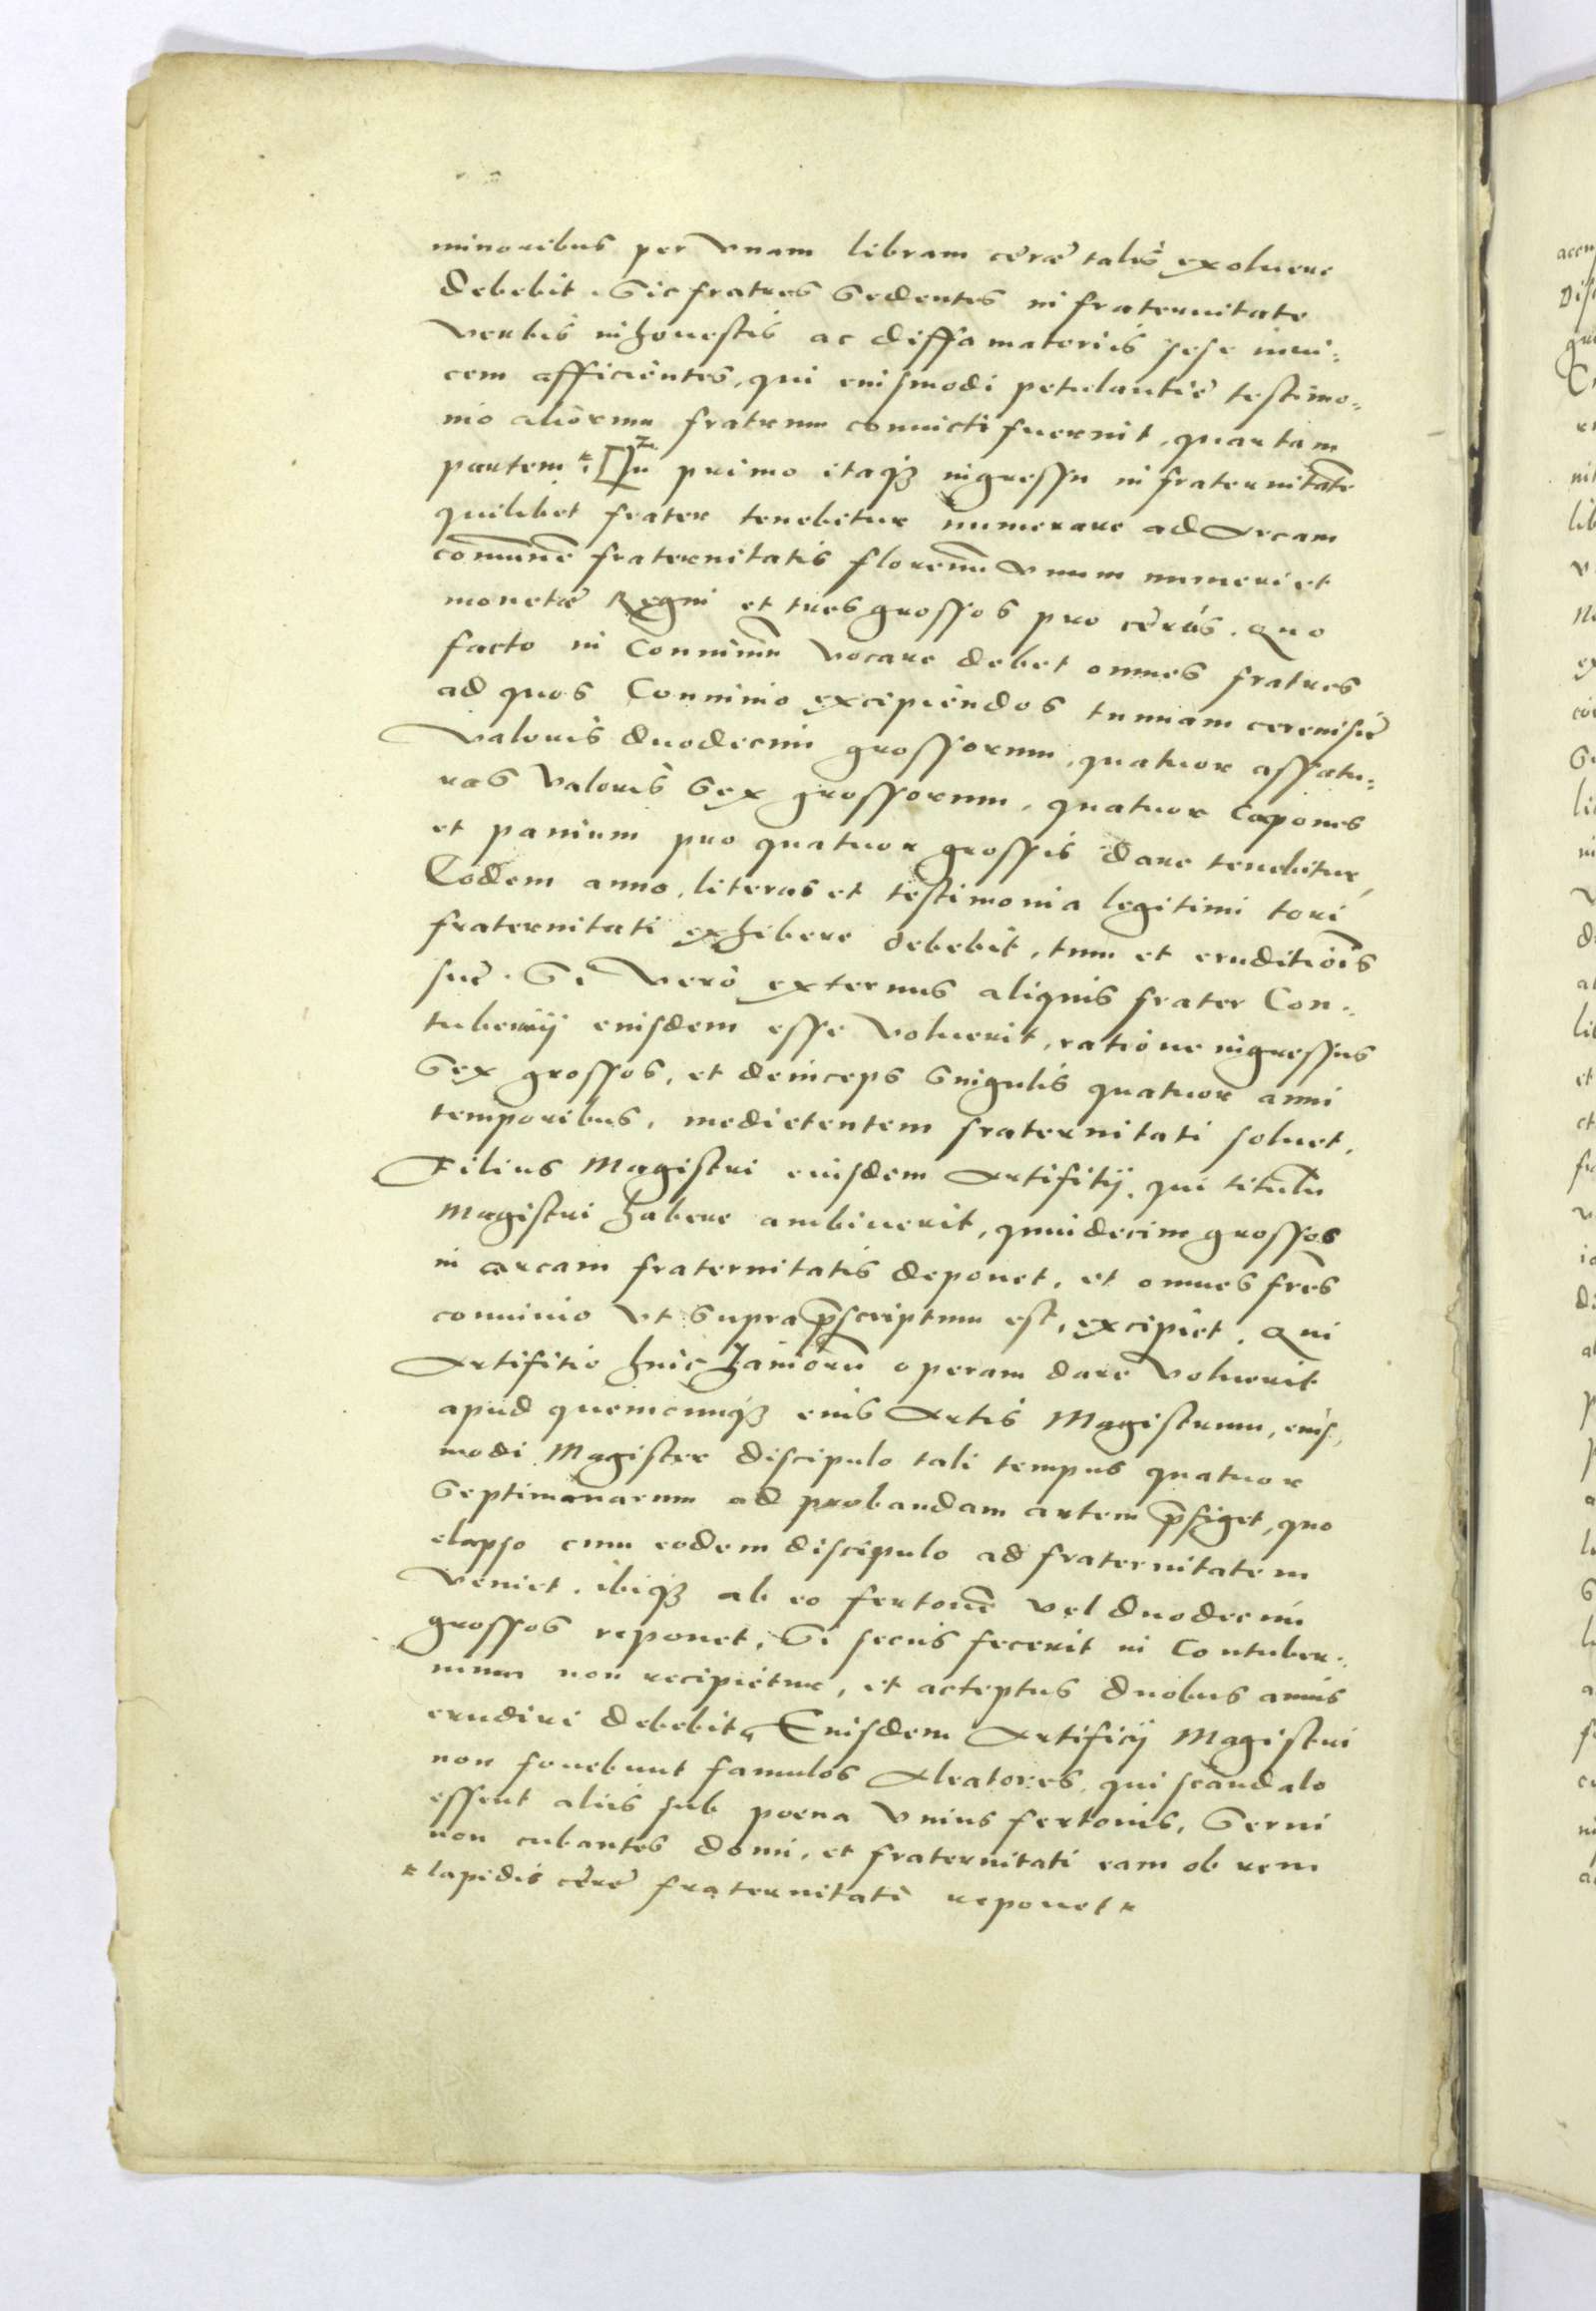 minoribus per Vnam libram ceræ talis exoluere
debebit. Sic fratres Sedentes in fraternitate
Verbis inhonestis ac diffamatoriis sese inui=
cem afficientes, qui eiusmodi petulantiẽ testimo=
nio aliorum fratrum conuicti fuerint, quartam
partem * In primo itaq̨ ingressu in fraternitatẽ
quilibet frater tenebitur numerare ad Arcam
com̃unẽ fraternitatis florenũ Vnum numeri et
monetæ Regni et tres grossos pro ceris. Quo
facto in Conuiuiũ Vocare debet omnes fratres
ad quos Conuiuio excipiendos tunnam cereuisiẽ
Valoris duodecim grossorum, quatuor assatu=
ras Valoris Sex grossorum, quatuor Capones
et panium pro quatuor grossis dare tenebitur,
Eodem anno, literas et testimonia legitimi tori
fraternitati exhibere debebit, tum et eruditiõis
suẽ. Si Vero externus aliquis frater Con=
tubernij eiusdem esse Voluerit, ratione ingressus
Sex grossos, et deinceps Singulis quatuor anni
temporibus, medietentem fraternitati soluet.
Filius Magistri eiusdem Artifitij, qui titulũ
Magistri habere ambiuerit, quindecim grossos
in arcam fraternitatis deponet, et omnes fr̃es
conuiuio Vt Supra p̃scriptum est, excipiet. Qui
Artifitio huic Laniorũ operam dare Voluerit
apud quemcunq̨ eius Artis Magistrum, eius=
modi Magister discipulo tali tempus quatuor
Septimanarum ad probandam artem p̃figet, quo
elapso cum eodem discipulo ad fraternitatem
Veniet. ibiq̨ ab eo fertonẽ Vel duodecim
grossos reponet. Si secus fecerit in Contuber=
nium non recipietur, et acteptus duobus annis
erudiri debebit, Eiusdem Artificij Magistri
non fouebunt famulos Aleatores, qui scandalo
essent aliis sub poena Vnius fertonis, Serui
non cubantes domi, et fraternitati eam ob rem
* lapidis cerẽ fraternitati reponet *